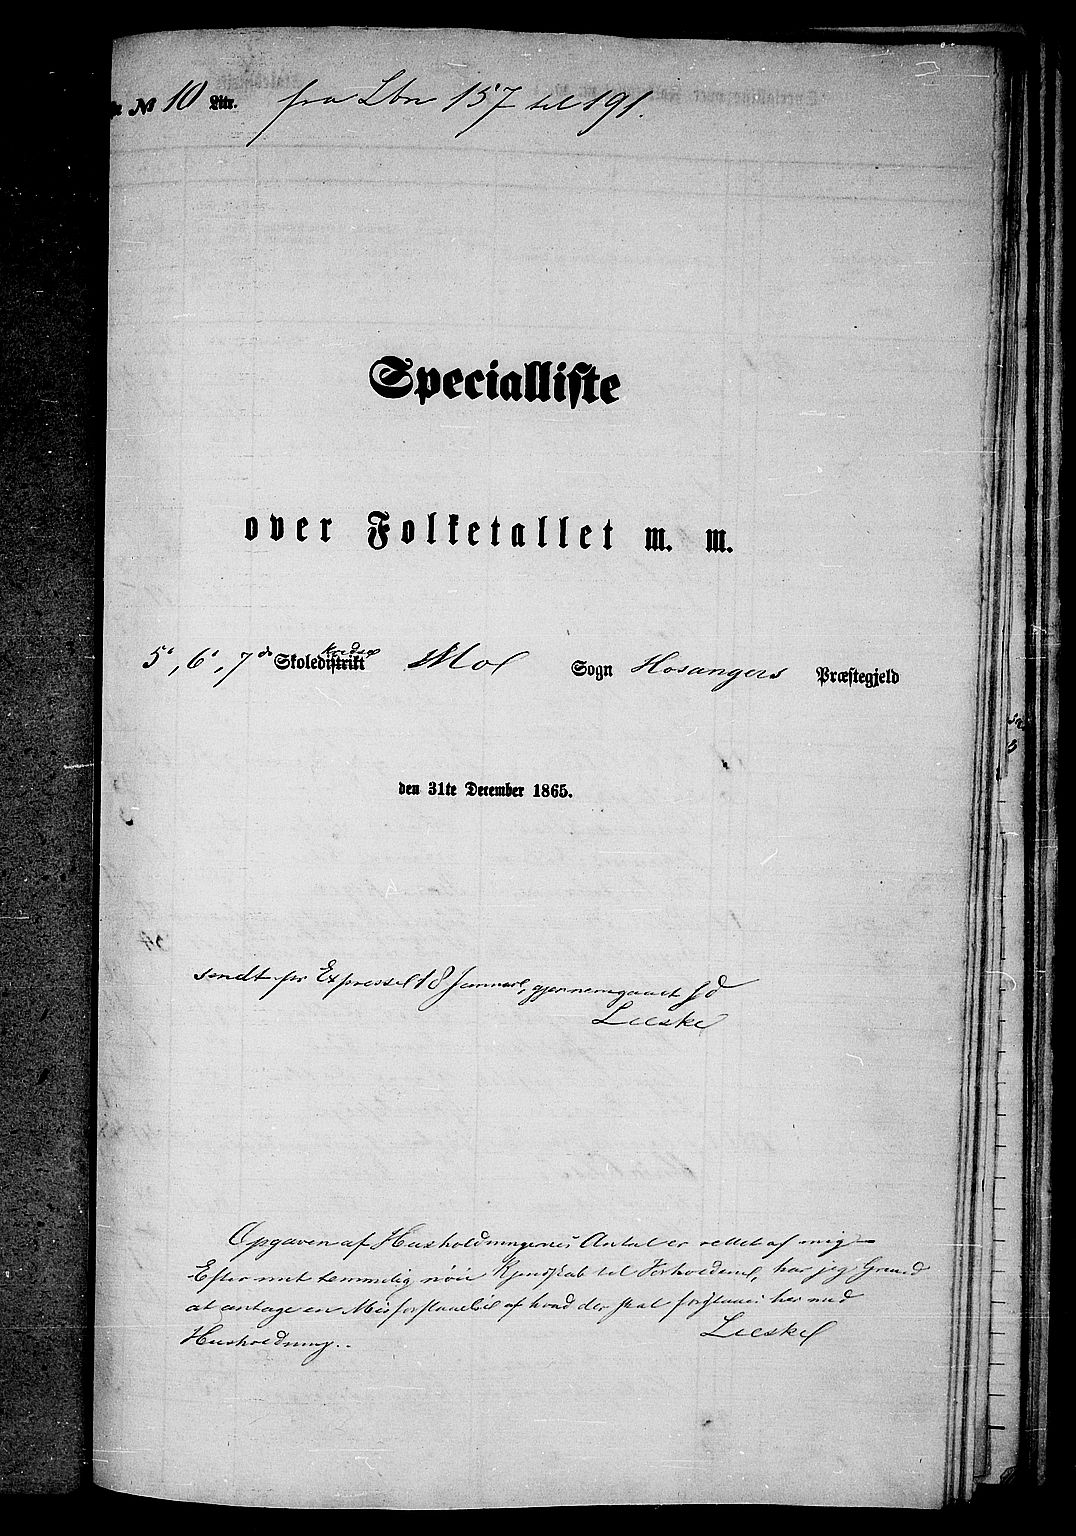 № 10 Litr. fra Lbn 157 til 191.
Specialliste
over Folketallet m. m.
5', 6', 7de Skoledistrikt kredse Mo Sogn Hosangers Præstegjeld
den 31te December 1865.
sendt pr Expresse 18 Januar, gjennemgaaet
Lieske
Opgaven af Husholdningernes Antal er rettet af mig
Efter mit temmelig nøie Kjendskab til Forholdene, har jeg Grund
at antage en Misforstaaelse af hvad der skal forstaaes her ved
Husholdning.. Lieske